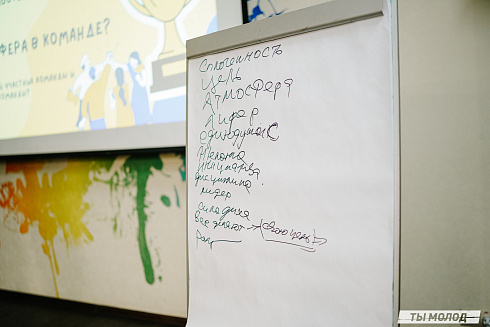 ФЕРА В КОМАНДЕ?
УЧАСТНИК КОМАНДЫ И
Сплоченность
Цель
Атмосфера
Лидер
единодушие
инициатива
дисциплина
лидер
сила духа
все делают → свою цель
ТЫ МОЛОД